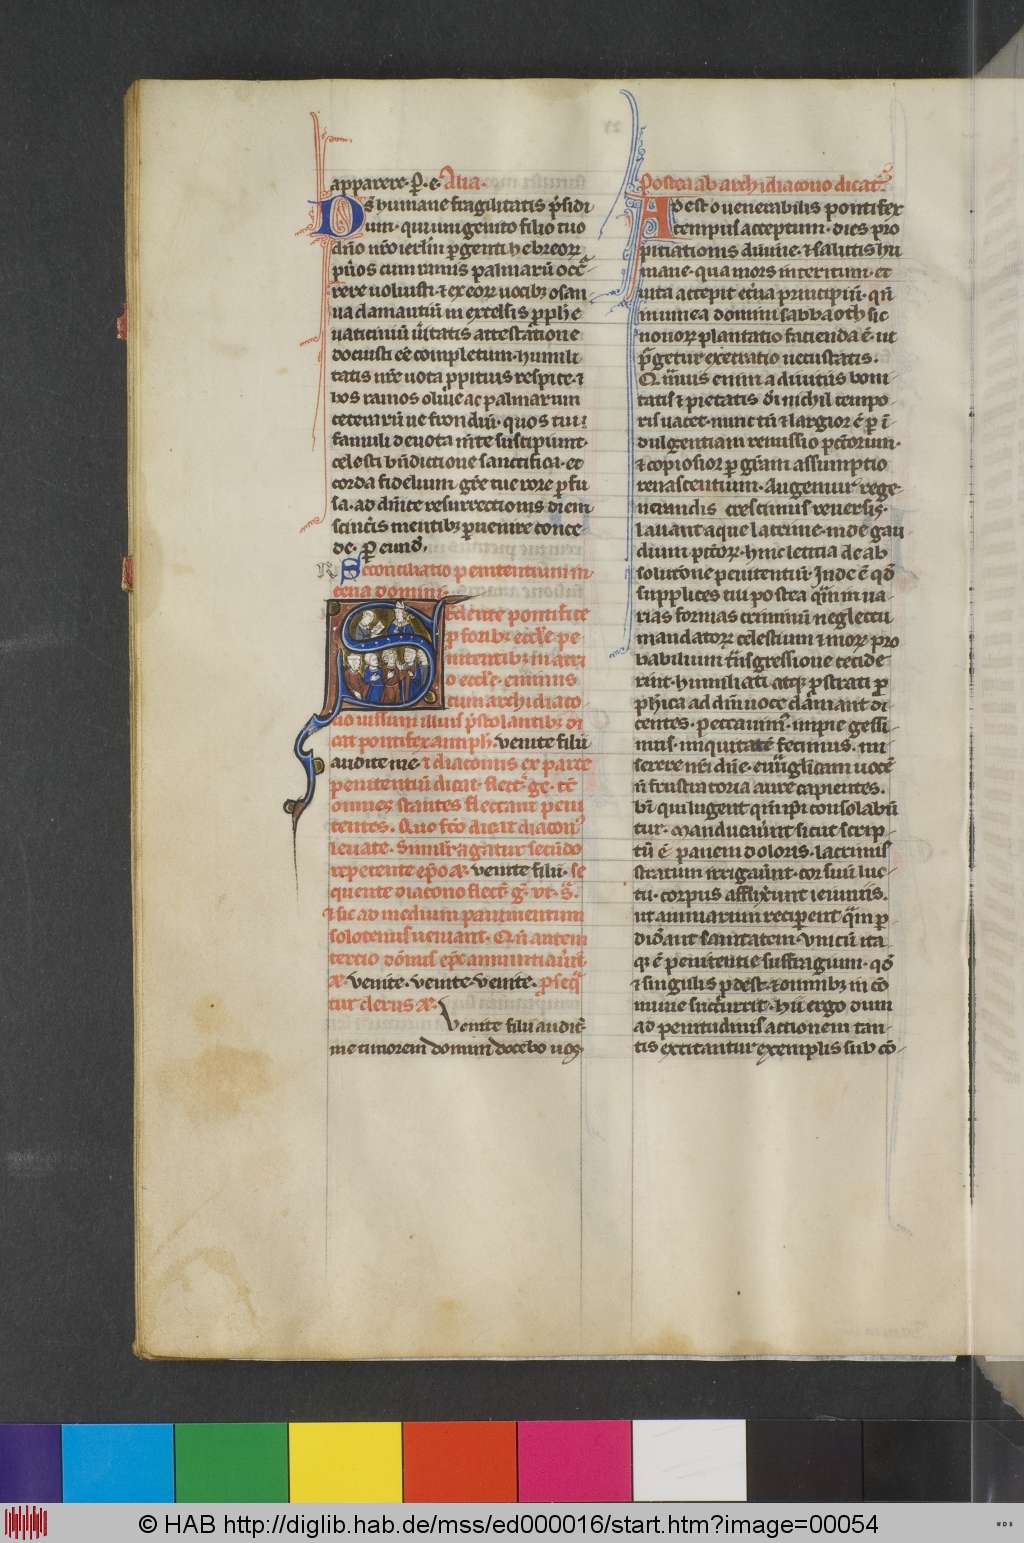 apparere. ꝑ. e. Alia.
Dš humane fragilitatis p̃sidi
um. qui unigenito filio tuo
dño nr̃o ierl̃m ꝑ genti hebreoꝝ
pu͛os cum ramis palmarũ occ̃r
rere uoluisti. ⁊ ex eoꝝ uocibꝫ osan
na clamantiũ in excelsis ꝓph̃e
uaticiniũ u͛itatis attestatione
docuisti eẽ completum. humili
tatis nr̃e uota ꝓpitius respice. ⁊
hos ramos oliue ac palmarum
ceterarũue frondiũ. quos tui
famuli deuota m̃te suscipiunt.
celesti bñdictione sanctifica. et
corda fidelium gr̃e tue rore ꝑfu
sa. ad diuĩte resurrectionis diem
scinc̃is mentibꝫ ꝑuenire conce
de. ꝑ eund̃.
R Econciliatio penitentium in
cena domini.
Sedente pontifice
ꝓ foribꝫ eccl̃e. pe
nitentibꝫ in atri
o eccl̃e. eminus
cum archidiaco
no iussum illius p̃stolantibꝫ di
cat pontifex antiph̃. venite filii
audite me. ⁊ diaconus ex parte
penitentiũ dicat. flect̃ gẽ. tc̃
omnes stantes flectant peni
tentes. Quo fc̃o dicat diacon̾
leuate. Similr̃ agatur secũdo
repetente ep̃o ã. venite filii. se
quente diacono flect̃ g̃. vt. s̃.
⁊ sic ad medium pauimentum
solotenus ueniant. Cũ autem
tertio dõmus ep̃c annuntiau͛it
ã. venite. venite. venite. ꝓseq̃
tur clerus ã.
Venite filii audit̃
me timorem domini docebo uos.
Postea ab archidiacono dicat̃.
Adest o uenerabilis pontifex
tempus acceptum. dies pro
pitiationis diuine. ⁊ salutis hu
mane. qua mors interitum. et
uita accepit et͛na principiũ. qñ
in uinea domini sabbaoth sic
nouoꝝ plantatio facienda ẽ. ut
p̃getur execratio uetustatis.
Quãuis enim a diuitiis boni
tatis ⁊ pietatis di nichil tempo
ris uacet. nunc tñ ⁊ largior ẽ ꝑ ĩ
dulgentiam remissio pc̃torum.
⁊ copiosior ꝑ gr̃am assumptio
renascentium. Augemur rege
nerandis crescimus reuersis.
Lauant aque lacrime. inde gau
dium pc̃toꝝ. hinc leticia de ab
solutone penitentiũ. Inde ẽ qđ
supplices tui postea quã in ua
rias formas criminũ neglectu
mandatoꝝ celestium ⁊ moꝝ pro
babilium tñsgressione cecide
rint. humiliati atqꝫ ꝓstrati ꝓ
phica ad dm̃ uoce clamant di
centes. peccauim̾. impie gessi
mus. iniquitatẽ fecimus. mi
serere nr̃i dñe. euuãglicam uocẽ
ñ frustratoria aure capientes.
bĩ qui lugent qm̃ ipi consolabũ
tur. Manducauer̃t sicut scrip
tũ ẽ panem doloris. lacrimis
stratum rigauer̃t. cor suũ luc
tu. corpus afflixer̃unt ieiuniis.
ut animarum reciperent quam ꝑ
diderant sanitatem. Vnicũ ita
qꝫ ẽ penitentie suffragium. qđ
⁊ singulis ꝓdest. ⁊ omnibꝫ in cõ
mune succurrit. Hii ergo dum
ad penitudinis actionem tan
tis excitantur exemplis sub cõ
© HAB http://diglib.hab.de/mss/ed000016/start.htm?image=00054